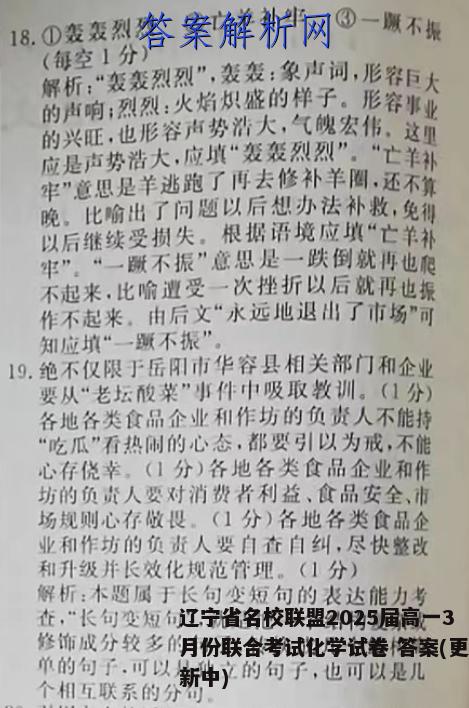 答案解析网
18. ①轰轰烈烈 亡羊补牢 ③一蹶不振
(每空 1 分)
解析:“轰轰烈烈”,轰轰:象声词,形容巨大
的声响;烈烈:火焰炽盛的样子。形容事业
的兴旺,也形容声势浩大,气魄宏伟。这里
应是声势浩大,应填“轰轰烈烈”。“亡羊补
牢”意思是羊逃跑了再去修补羊圈,还不算
晚。比喻出了问题以后想办法补救,免得
以后继续受损失。根据语境应填“亡羊补
牢”。“一蹶不振”意思是一跌倒就再也爬
不起来,比喻遭受一次挫折以后就再也振
作不起来。由后文“永远地退出了市场”可
知应填“一蹶不振”。
19. 绝不仅限于岳阳市华容县相关部门和企业
要从“老坛酸菜”事件中吸取教训。(1 分)
各地各类食品企业和作坊的负责人不能持
“吃瓜”看热闹的心态,都要引以为戒,不能
心存侥幸。(1 分)各地各类食品企业和作
坊的负责人要对消费者利益、食品安全、市
场规则心存敬畏。(1 分)各地各类食品企
业和作坊的负责人要自查自纠,尽快整改
和升级并长效化规范管理。(1 分)
解析:本题属于长句变短句的表达能力考
查,“长句变短句
修饰成分较多的
单的句子,可以是独立的句子,也可以是几
个相互联系的分句。
辽宁省名校联盟2025届高一3
月份联合考试化学试卷 答案(更
新中)